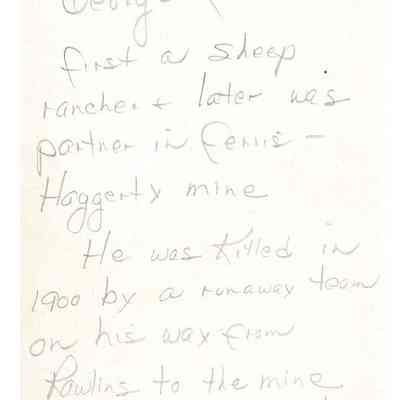 George
first a sheep
rancher + later was
partner in Ferris -
Haggerty mine
He was Killed in
1900 by a runaway team
on his way from
Rawlins to the mine